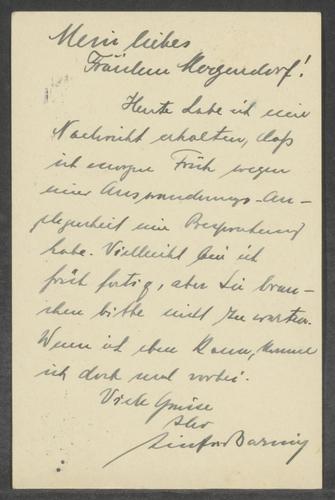 Mein liebes
Fräulein Morgendorf!
Heute habe ich eine
Nachricht erhalten, daß
ich morgen Früh wegen
einer Auswanderungs-An-
gelegenheit eine Besprechung
habe. Vielleicht bin ich
früh fertig, aber Sie brau-
chen bitte nicht zu warten.
Wenn ich eben kann, komme
ich doch mal vorbei.
Viele Grüsse
Ihr